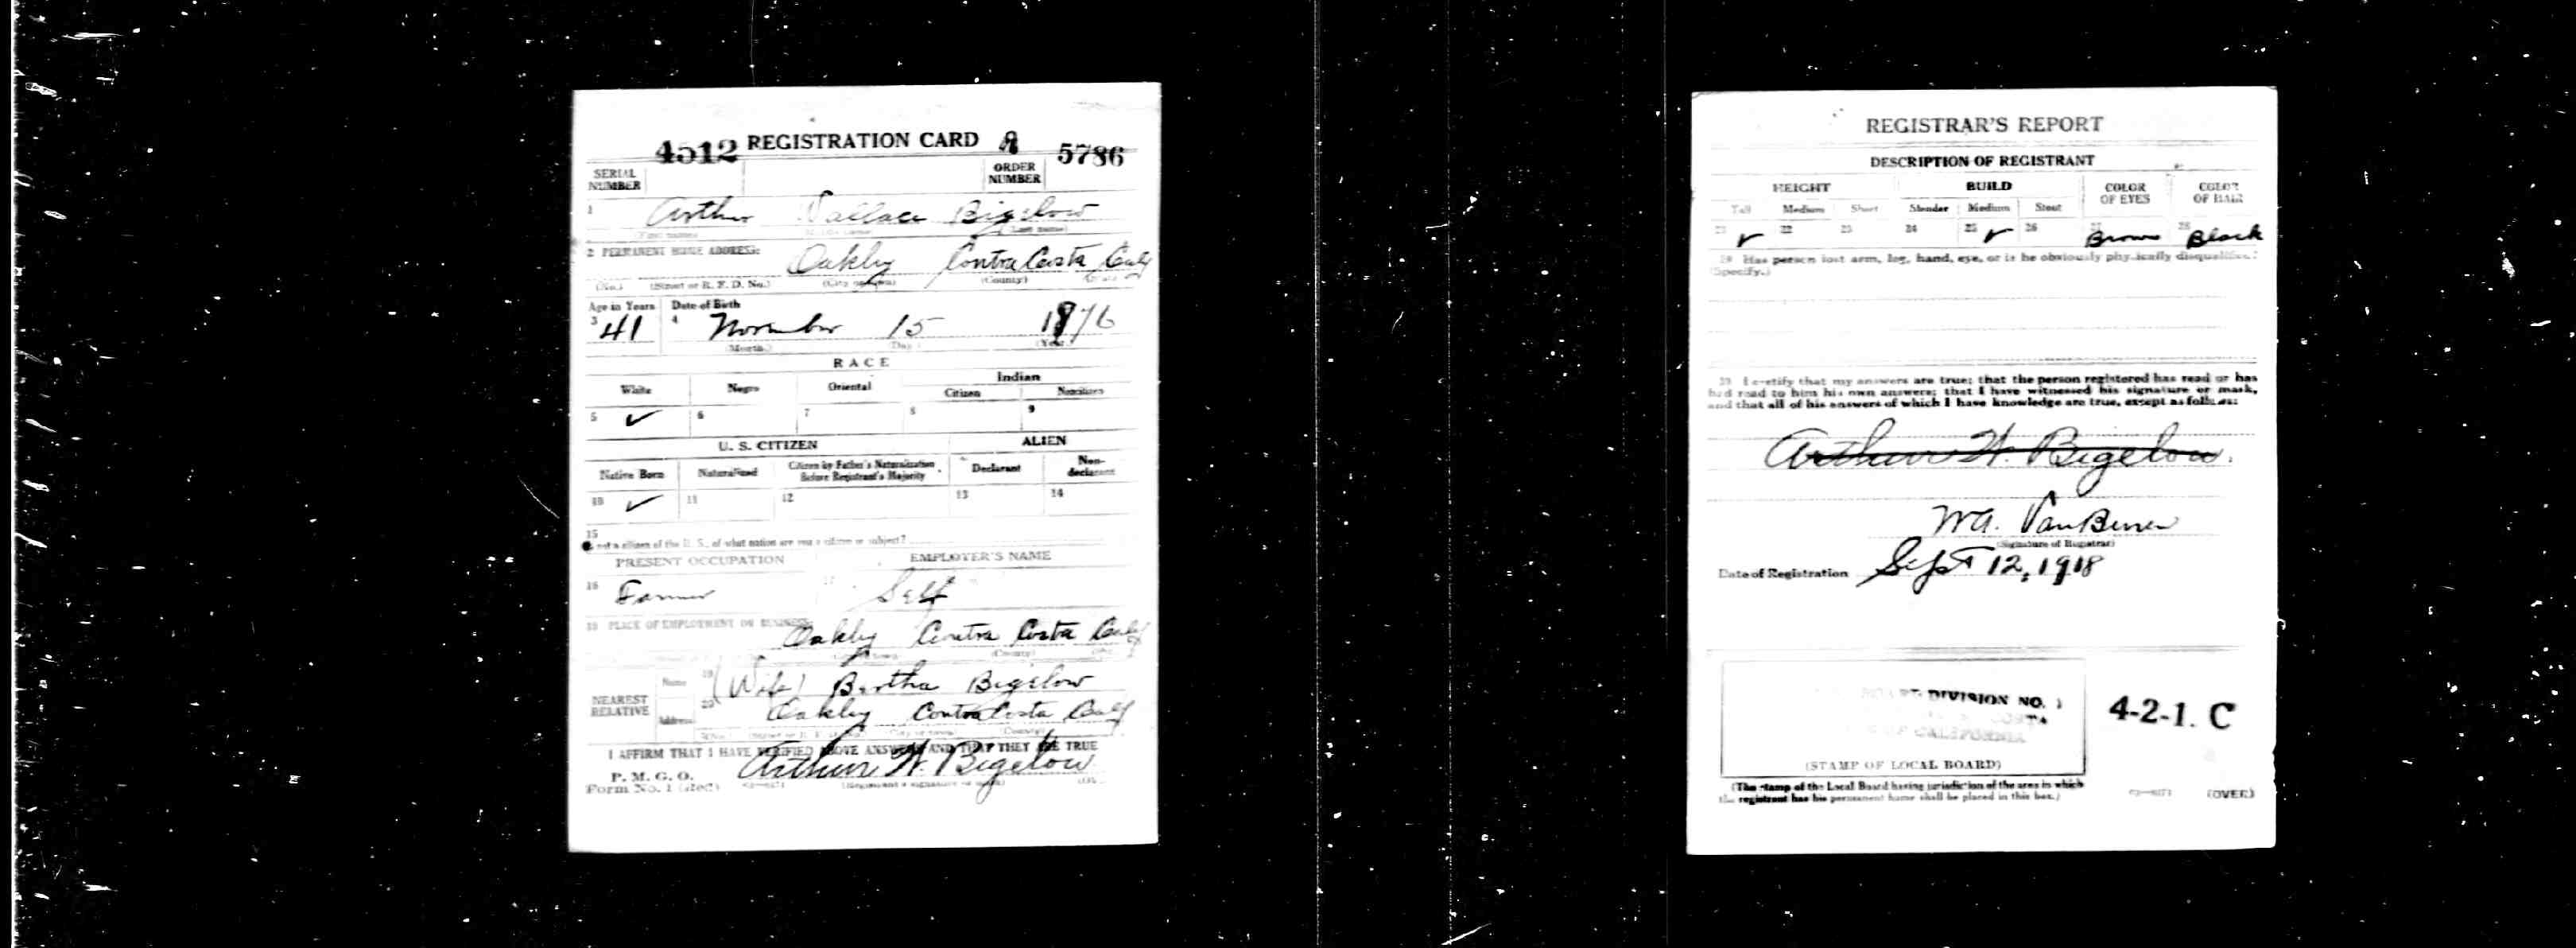 4512 REGISTRATION CARD A 5786
SERIAL NUMBER ORDER NUMBER
1 Arthur Wallace Bigelow
(First name) (Last name)
2 PERMANENT HOME ADDRESS:
Oakley Contra Costa Calf
(No.) (Street or R. F. D. No.) (City or town) (County) (State)
Age in Years Date of Birth
3 41 4 November 15 1876
(Month.) (Day.) (Year.)
RACE
White Negro Oriental Indian
Citizen Noncitizen
5 ✓ 6 7 8 9
U. S. CITIZEN ALIEN
Native Born Naturalized Citizen by Father's Naturalization Before Registrant's Majority Declarant Non-declarant
10 ✓ 11 12 13 14
15
not a citizen of the U. S., of what nation are you a citizen or subject?
PRESENT OCCUPATION EMPLOYER'S NAME
16 Farmer 17 Self
18 PLACE OF EMPLOYMENT OR BUSINESS:
Oakley Contra Costa Calf
(County)
NEAREST RELATIVE
Name 19 (Wife) Bertha Bigelow
Address 20 Oakley Contra Costa Calf
(No.) (City or town) (County)
I AFFIRM THAT I HAVE VERIFIED ABOVE ANSWERS AND THAT THEY ARE TRUE
P. M. G. O.
Form No. 1 (Red)
Arthur W. Bigelow
(Registrant's signature or mark)
REGISTRAR'S REPORT
DESCRIPTION OF REGISTRANT
HEIGHT BUILD COLOR OF EYES COLOR OF HAIR
Tall Medium Short Slender Medium Stout
21 ✓ 22 23 24 25 ✓ 26 27 Brown 28 Black
29 Has person lost arm, leg, hand, eye, or is he obviously physically disqualified?
(Specify.)
30 I certify that my answers are true; that the person registered has read or has
had read to him his own answers; that I have witnessed his signature or mark,
and that all of his answers of which I have knowledge are true, except as follows:
Arthur W. Bigelow.
(Signature of Registrar)
Date of Registration Sept 12, 1918
BOARD DIVISION NO. 1
COSTA
OF CALIFORNIA
(STAMP OF LOCAL BOARD)
4-2-1. C
(The stamp of the Local Board having jurisdiction of the area in which
the registrant has his permanent home shall be placed in this box.)
(OVER)